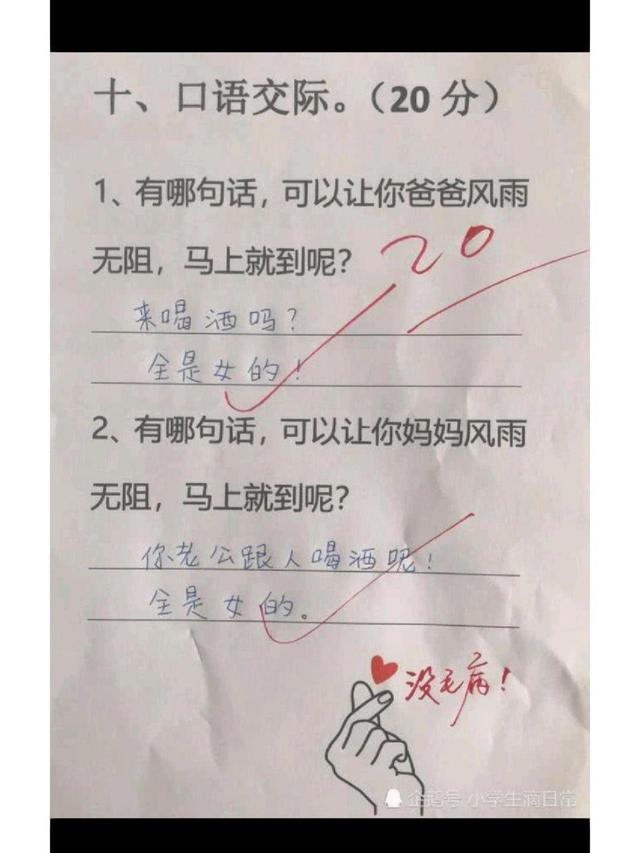 十、口语交际。（20 分）
1、有哪句话，可以让你爸爸风雨
无阻，马上就到呢？
20
来喝洒吗？
全是女的！
2、有哪句话，可以让你妈妈风雨
无阻，马上就到呢？
你老公跟人喝洒呢！
全是女的。
没毛病！
企鹅号 小学生滴日常